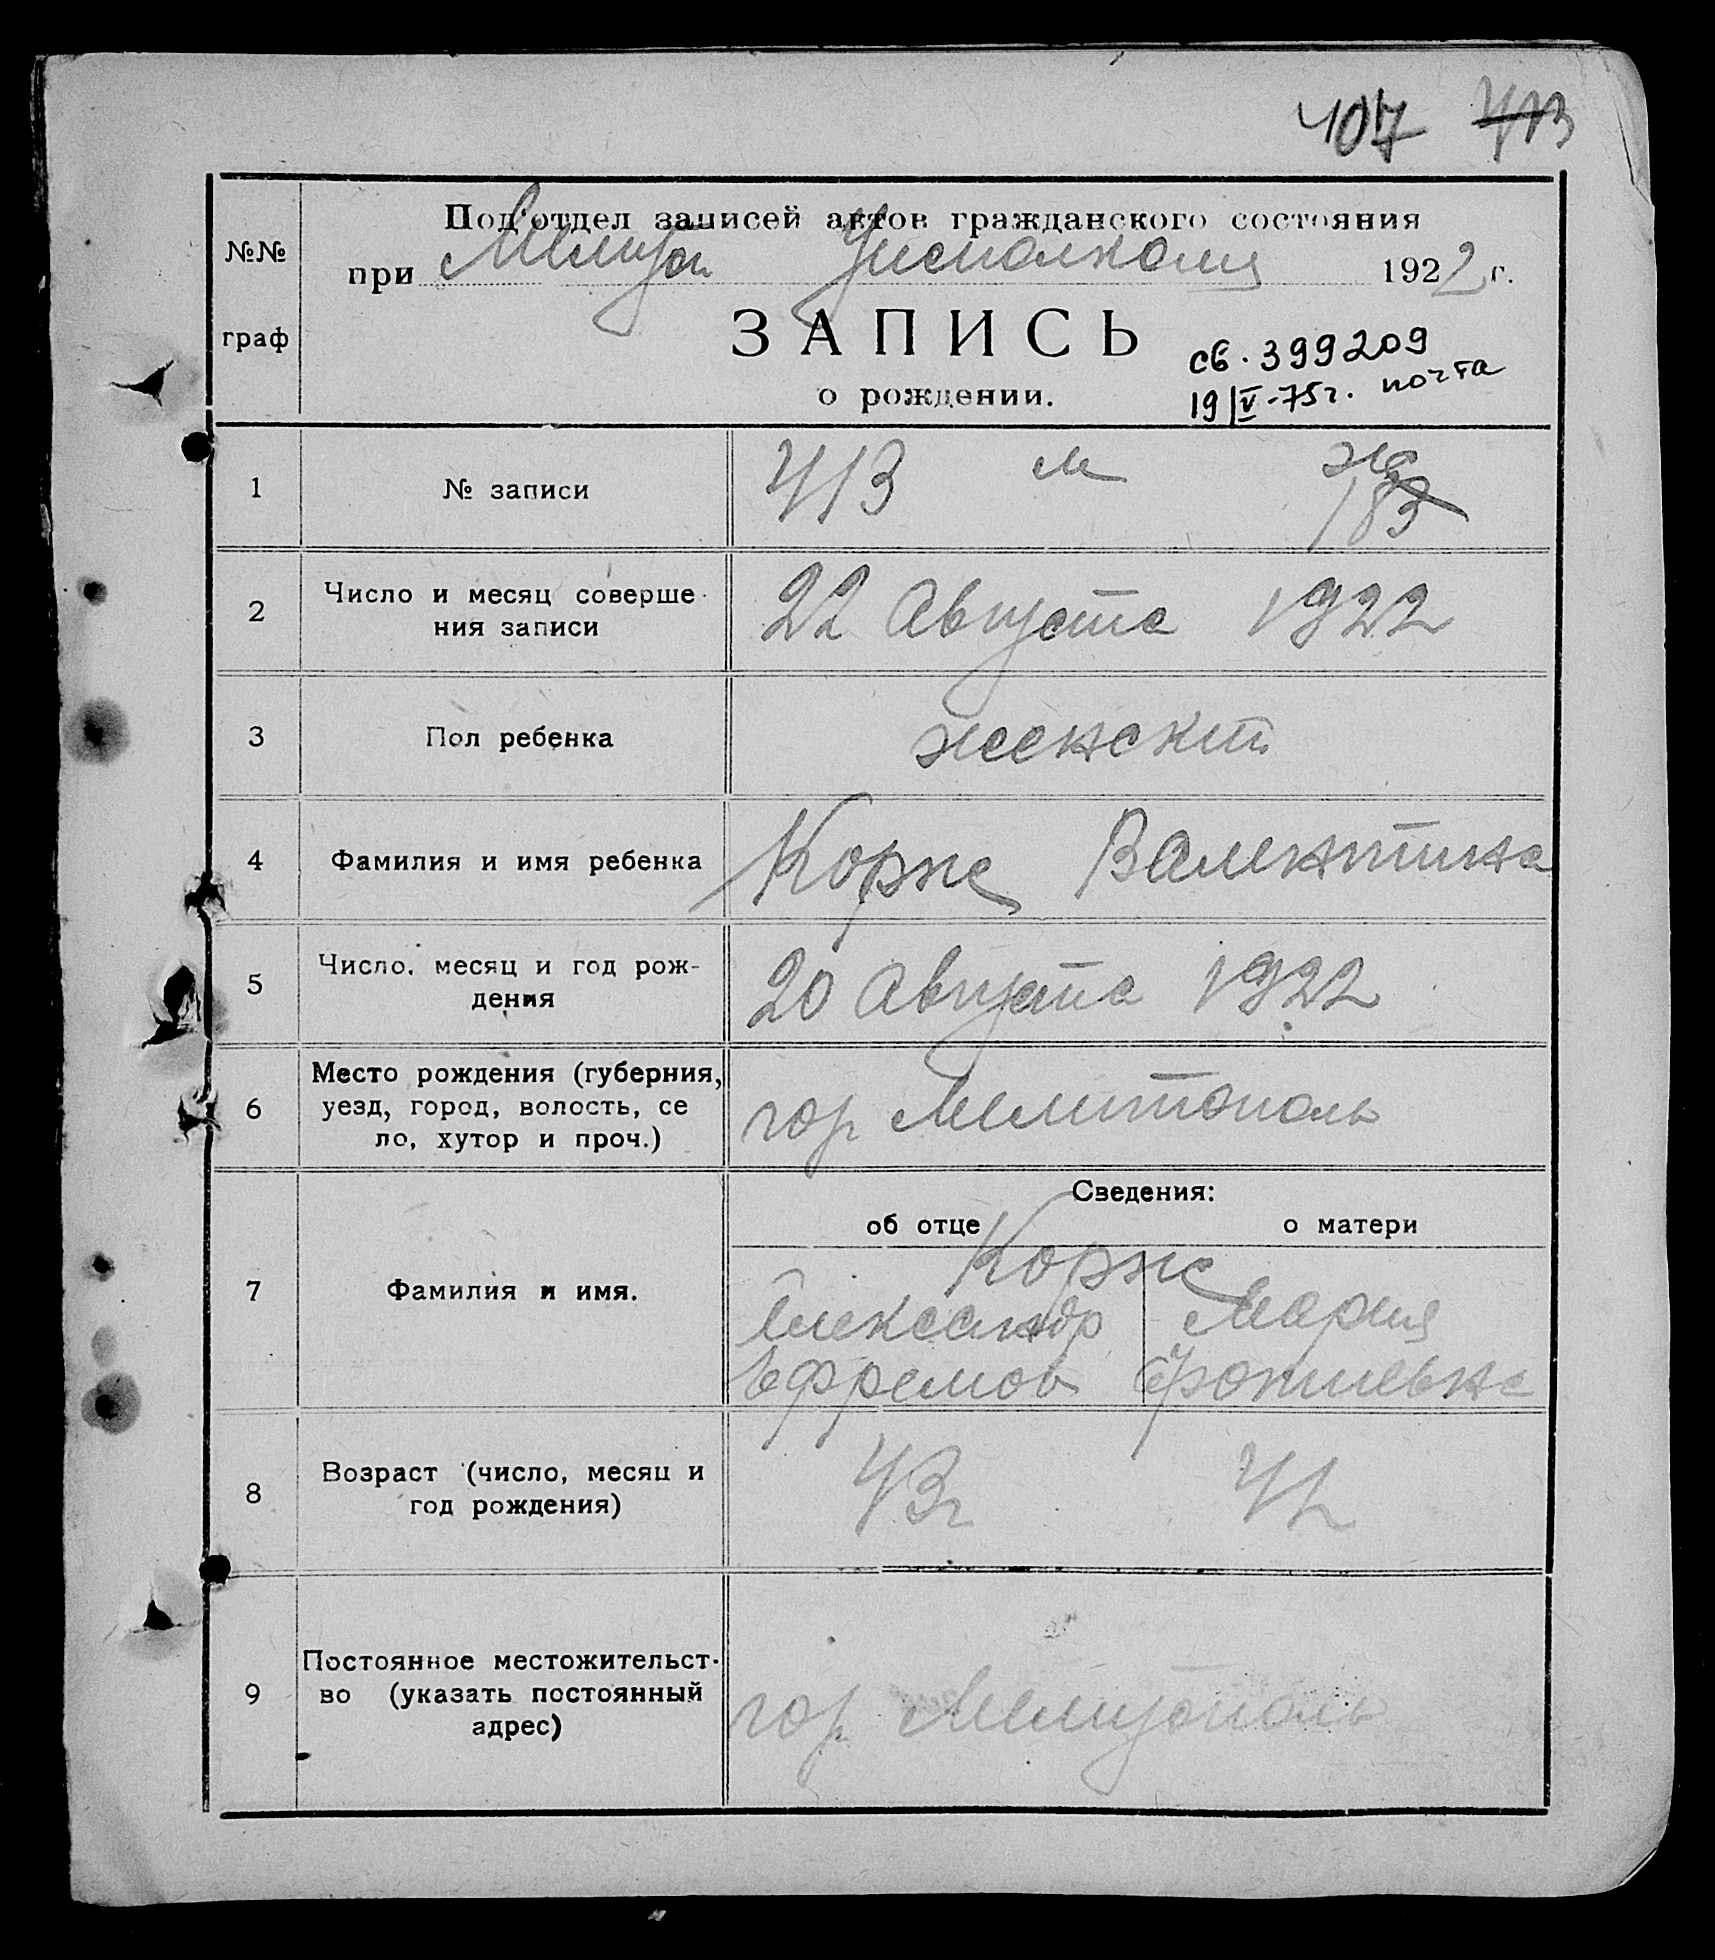 407 413
Под'отдел записей актов гражданского состояния
№№
при Мелитоп Уисполкома 1922 г.
граф
ЗАПИСЬ
св. 399209
о рождении.
19/V-75г. почта
1 № записи 413 м ж
183
2 Число и месяц соверше-
ния записи
22 Августа 1922
3 Пол ребенка женский
4 Фамилия и имя ребенка Корж Валентина
5 Число, месяц и год рож-
дения
20 Августа 1922
6 Место рождения (губерния,
уезд, город, волость, се
ло, хутор и проч.)
гор Мелитополь
Сведения:
об отце о матери
7 Фамилия и имя.
Корж
Александр Мария
Ефремов
8 Возраст (число, месяц и
год рождения)
43г
9 Постоянное местожительст-
во (указать постоянный
адрес)
гор Мелитополь